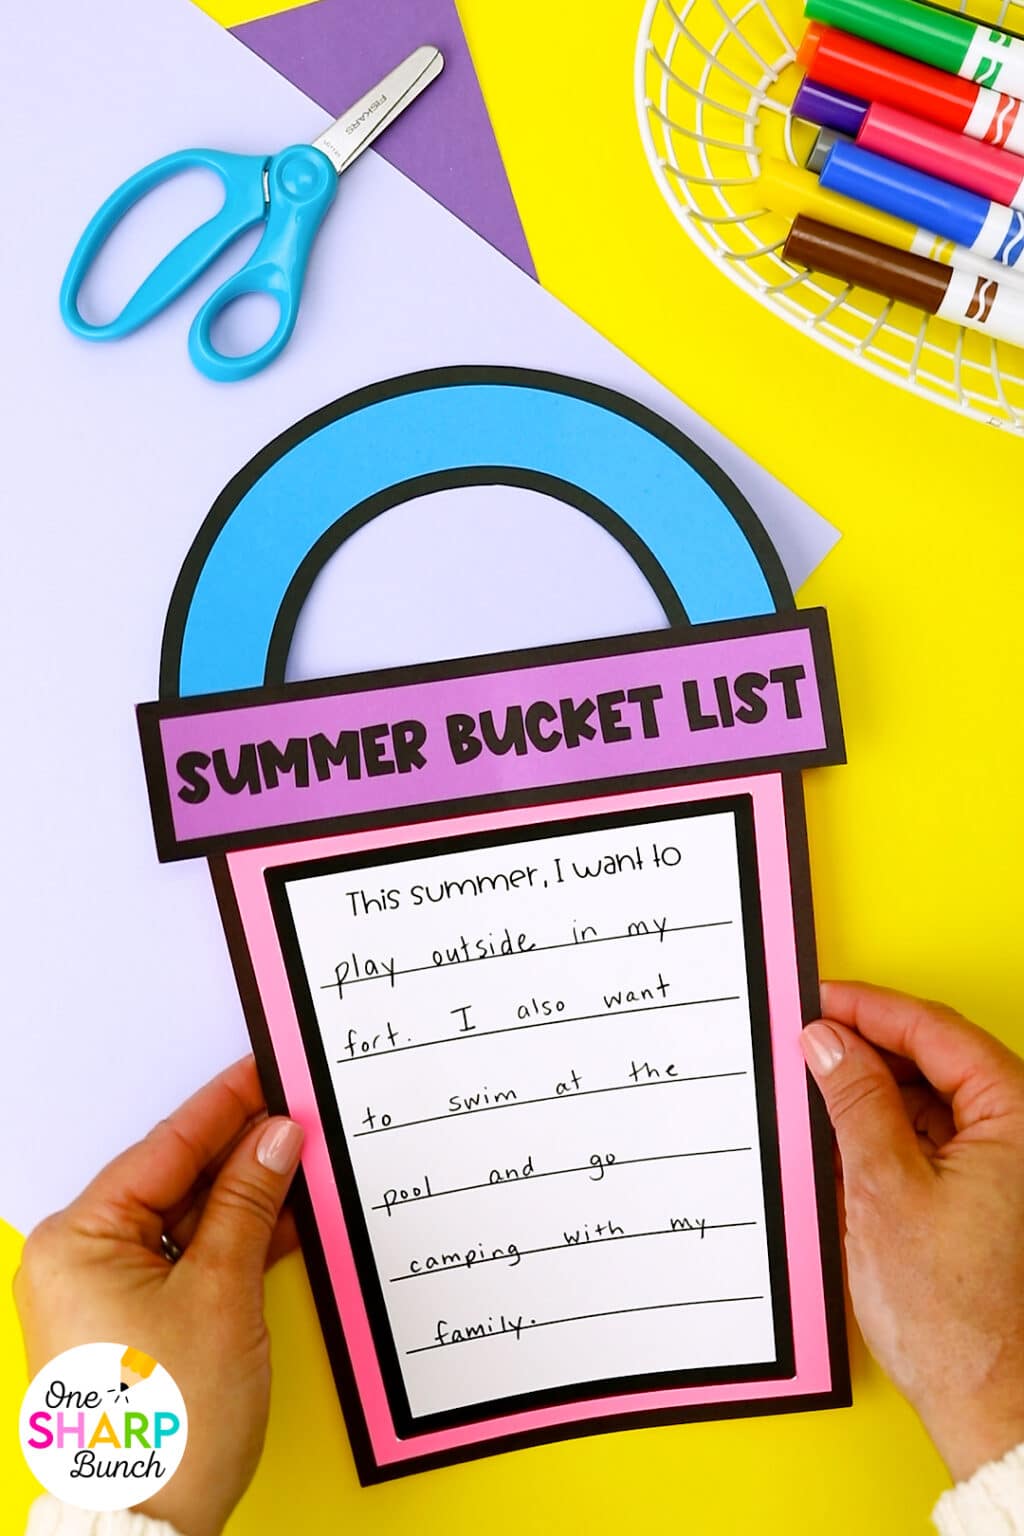 FISKARS
SUMMER BUCKET LIST
This summer, I want to
play outside in my
fort. I also want
to swim at the
pool and go
camping with my
family.
One
SHARP
Bunch